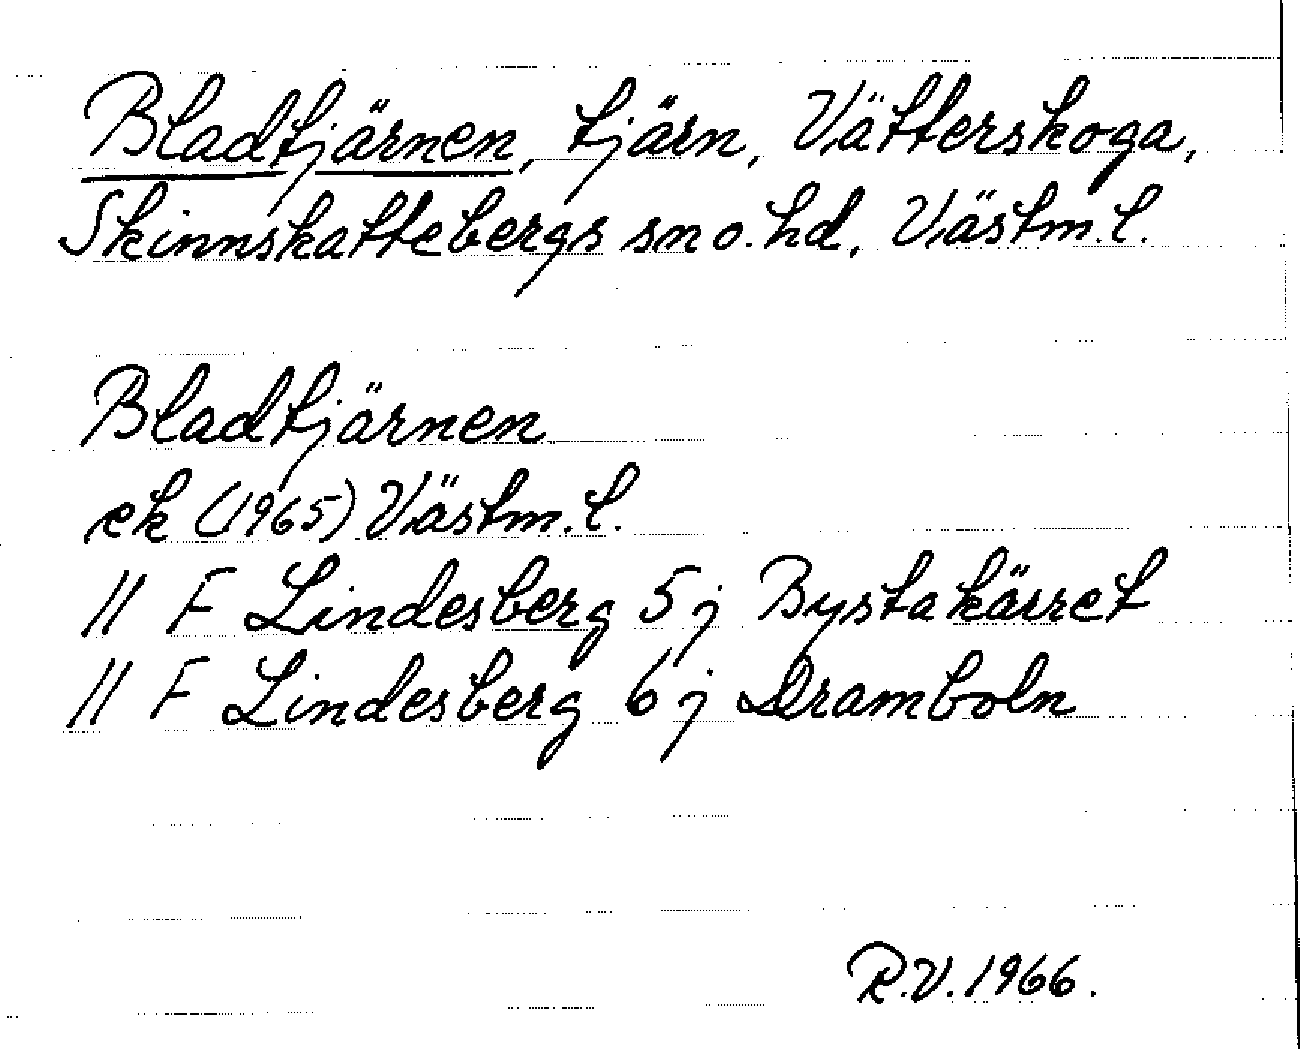 Bladtjärnen, tjärn, Vätterskoga,
Skinnskattebergs sn o. hd, Västm. l.
Bladtjärnen
ek (1965) Västm. l.
11 F Lindesberg 5 j Bystakärret
11 F Lindesberg 6 j Dramboln
R.V. 1966.